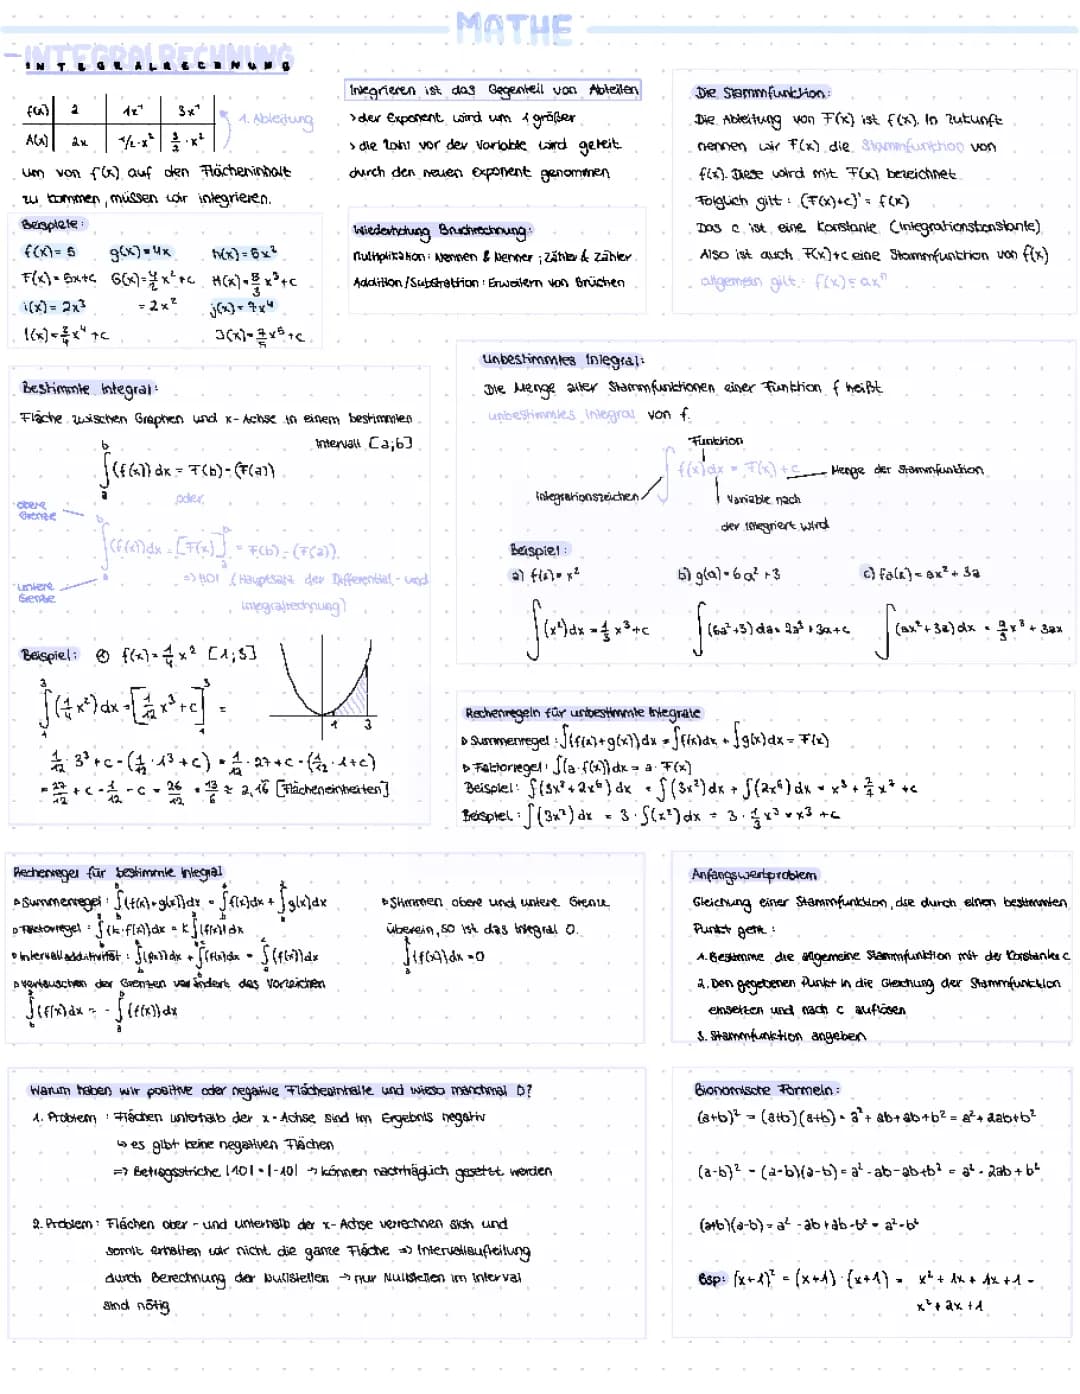 MATHE
INTEGRALRECHNUNG
f(x) 2 1x¹ 3x¹
A(x) 2x 1/2·x² 3/2·x²
1. Ableitung
um von f(x) auf den Flächeninhalt
zu kommen, müssen wir integrieren.
Beispiele:
f(x)=5 g(x)=4x h(x)=5x²
F(x)=5x+c G(x)=4/2x²+c H(x)=5/3x³+c
=2x²
i(x)=2x³ j(x)=7x⁴
I(x)=2/4x⁴+c J(x)=7/5x⁵+c
Integrieren ist das Gegenteil von Ableiten
> der Exponent wird um 1 größer
> die Zahl vor der Variable wird geteilt
durch den neuen Exponent genommen
Wiederholung Bruchrechnung:
Multiplikation: Nenner & Nenner; Zähler & Zähler
Addition/Subtraktion: Erweitern von Brüchen
Die Stammfunktion:
Die Ableitung von F(x) ist f(x). In Zukunft
nennen wir F(x) die Stammfunktion von
f(x). Diese wird mit F(x) bezeichnet.
Folglich gilt: (F(x)+c)'=f(x)
Das c ist eine Konstante (Integrationskonstante)
Also ist auch F(x)+c eine Stammfunktion von f(x)
allgemein gilt: f(x)=axⁿ
Bestimmte Integral:
Fläche zwischen Graphen und x-Achse in einem bestimmten
Intervall [a;b]
∫ₐᵇ(f(x))dx=F(b)-(F(a))
oder
obere
Grenze
∫ₐᵇ(f(x))dx=[F(x)]ₐᵇ=F(b)-(F(a))
untere
Grenze
=> HDI (Hauptsatz der Differential- und
Integralrechnung)
Beispiel: f(x)=1/4x² [1;3]
∫₁³(1/4x²)dx=[1/12x³+c]₁³=
1/12·3³+c-(1/12·1³+c)=1/12·27+c-(1/12·1+c)
=27/12+c-1/12-c=26/12=13/6≈2,16 [Flächeneinheiten]
1 3
Unbestimmtes Integral:
Die Menge aller Stammfunktionen einer Funktion f heißt
unbestimmtes Integral von f.
Funktion
∫f(x)dx=F(x)+c
Menge der Stammfunktion
Integrationszeichen
Variable nach
der integriert wird
Beispiel:
a) f(x)=x² b) g(a)=6a²+3 c) fa(x)=ax²+3a
∫(x²)dx=1/3x³+c ∫(6a²+3)da=2a³+3a+c ∫(ax²+3a)dx=a/3x³+3ax
Rechenregeln für unbestimmte Integrale
▹ Summenregel: ∫(f(x)+g(x))dx=∫f(x)dx+∫g(x)dx=F(x)
▹ Faktorregel: ∫(a·f(x))dx=a·F(x)
Beispiel: ∫(3x²+2x⁶)dx=∫(3x²)dx+∫(2x⁶)dx=x³+2/7x⁷+c
Beispiel: ∫(3x²)dx=3·∫(x²)dx=3·1/3x³=x³+c
Rechenregel für bestimmte Integral
▹ Summenregel: ∫ₐᵇ(f(x)+g(x))dx=∫ₐᵇf(x)dx+∫ₐᵇg(x)dx
▹ Faktorregel: ∫ₐᵇ(k·f(x))dx=k∫ₐᵇ(f(x))dx
▹ Intervalladditivität: ∫ₐᵇ(f(x))dx+∫(f(x))dx=∫(f(x))dx
▹ vertauschen der Grenzen verändert das Vorzeichen
∫(f(x)dx=-∫(f(x))dx
▹ Stimmen obere und untere Grenze
überein, so ist das Integral 0.
∫ₐᵃ(f(x))dx=0
Anfangswertproblem
Gleichung einer Stammfunktion, die durch einen bestimmten
Punkt geht:
1. Bestimme die allgemeine Stammfunktion mit der Konstante c
2. Den gegebenen Punkt in die Gleichung der Stammfunktion
einsetzen und nach c auflösen
3. Stammfunktion angeben
Warum haben wir positive oder negative Flächeninhalte und wieso manchmal 0?
1. Problem: Flächen unterhalb der x-Achse sind im Ergebnis negativ
↳ es gibt keine negativen Flächen
=> Betragsstriche |10|=|-10| → können nachträglich gesetzt werden
2. Problem: Flächen ober- und unterhalb der x-Achse verrechnen sich und
somit erhalten wir nicht die ganze Fläche => Intervallaufteilung
durch Berechnung der Nullstellen → nur Nullstellen im Interval
sind nötig
Bionomische Formeln:
(a+b)²=(a+b)(a+b)=a²+ab+ab+b²=a²+2ab+b²
(a-b)²=(a-b)(a-b)=a²-ab-ab+b²=a²-2ab+b²
(a+b)(a-b)=a²-ab+ab-b²=a²-b²
Bsp: (x+1)²=(x+1)·(x+1)=x²+1x+1x+1=
x²+2x+1